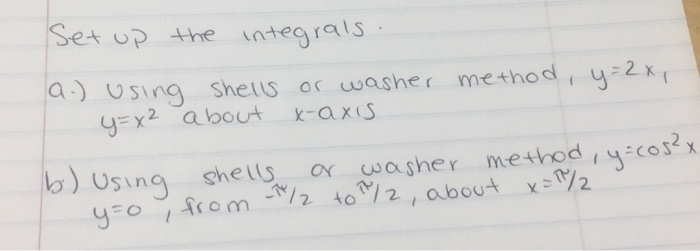 Set up the integrals.
a.) Using shells or washer method, y=2x,
y=x² about x-axis
b) Using shells or washer method, y=cos²x
y=0, from -π/2 to π/2, about x=π/2